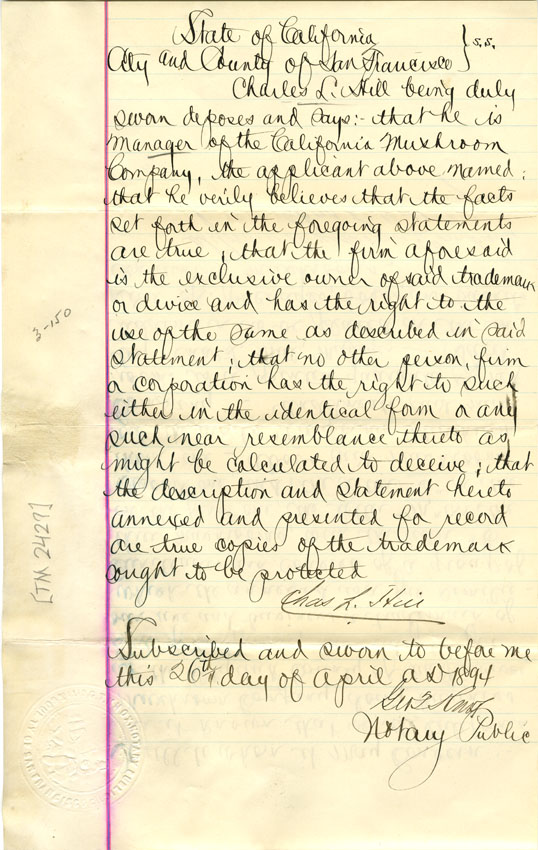 State of California } s.s.
City and County of San Francisco
Charles L. Hill being duly
sworn deposes and says:- that he is
Manager of the California Mushroom
Company, the applicant above named;
that he verily believes that the facts
set forth in the foregoing statements
are true, that the firm aforesaid
is the exclusive owner of said trademark
or device and has the right to the
use of the same as described in said
statement; that no other person, firm
or corporation has the right to such
either in the identical form or any
such near resemblance thereto as
might be calculated to deceive; that
the description and statement hereto
annexed and presented for record
are true copies of the trademark
sought to be protected
Chas L. Hill
Subscribed and sworn to before me
this 26th day of April AD 1894
Geo T. Knox
Notary Public
3-150
[TM 2427]